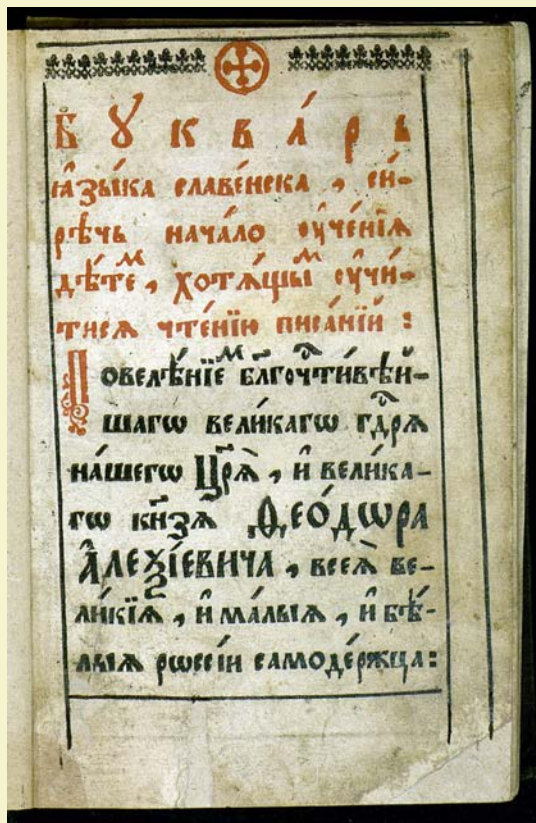 Б Ꙋ к в а́ р ь
ꙗ҆зы́ка славе́нска , си́-
рѣчь нача́ло ᲂу҆че́нїѧ
дѣ́теⷨ , хотѧ́щыⷨ ᲂу҆чи́-
тисѧ чте́нїю писа́нїй :
Повелѣ́нїеⷨ бл҃гочⷭ҇ти́вѣй-
шагѡ вели́кагѡ гдⷭ҇рѧ
на́шегѡ Цр҃ѧ̀ , и҆ вели́ка-
гѡ кн҃зѧ Ѳео́дѡра
А҆леѯі́евича , всеѧ̀ ве-
ли́кїѧ , и҆ ма́лыѧ , и҆ бѣ́-
лыѧ рѡссі́и самоде́ржца :